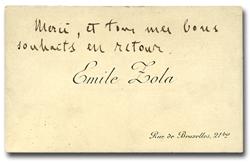 Merci, et tous mes bons
souhaits en retour.
Emile Zola
Rue de Bruxelles, 21bis